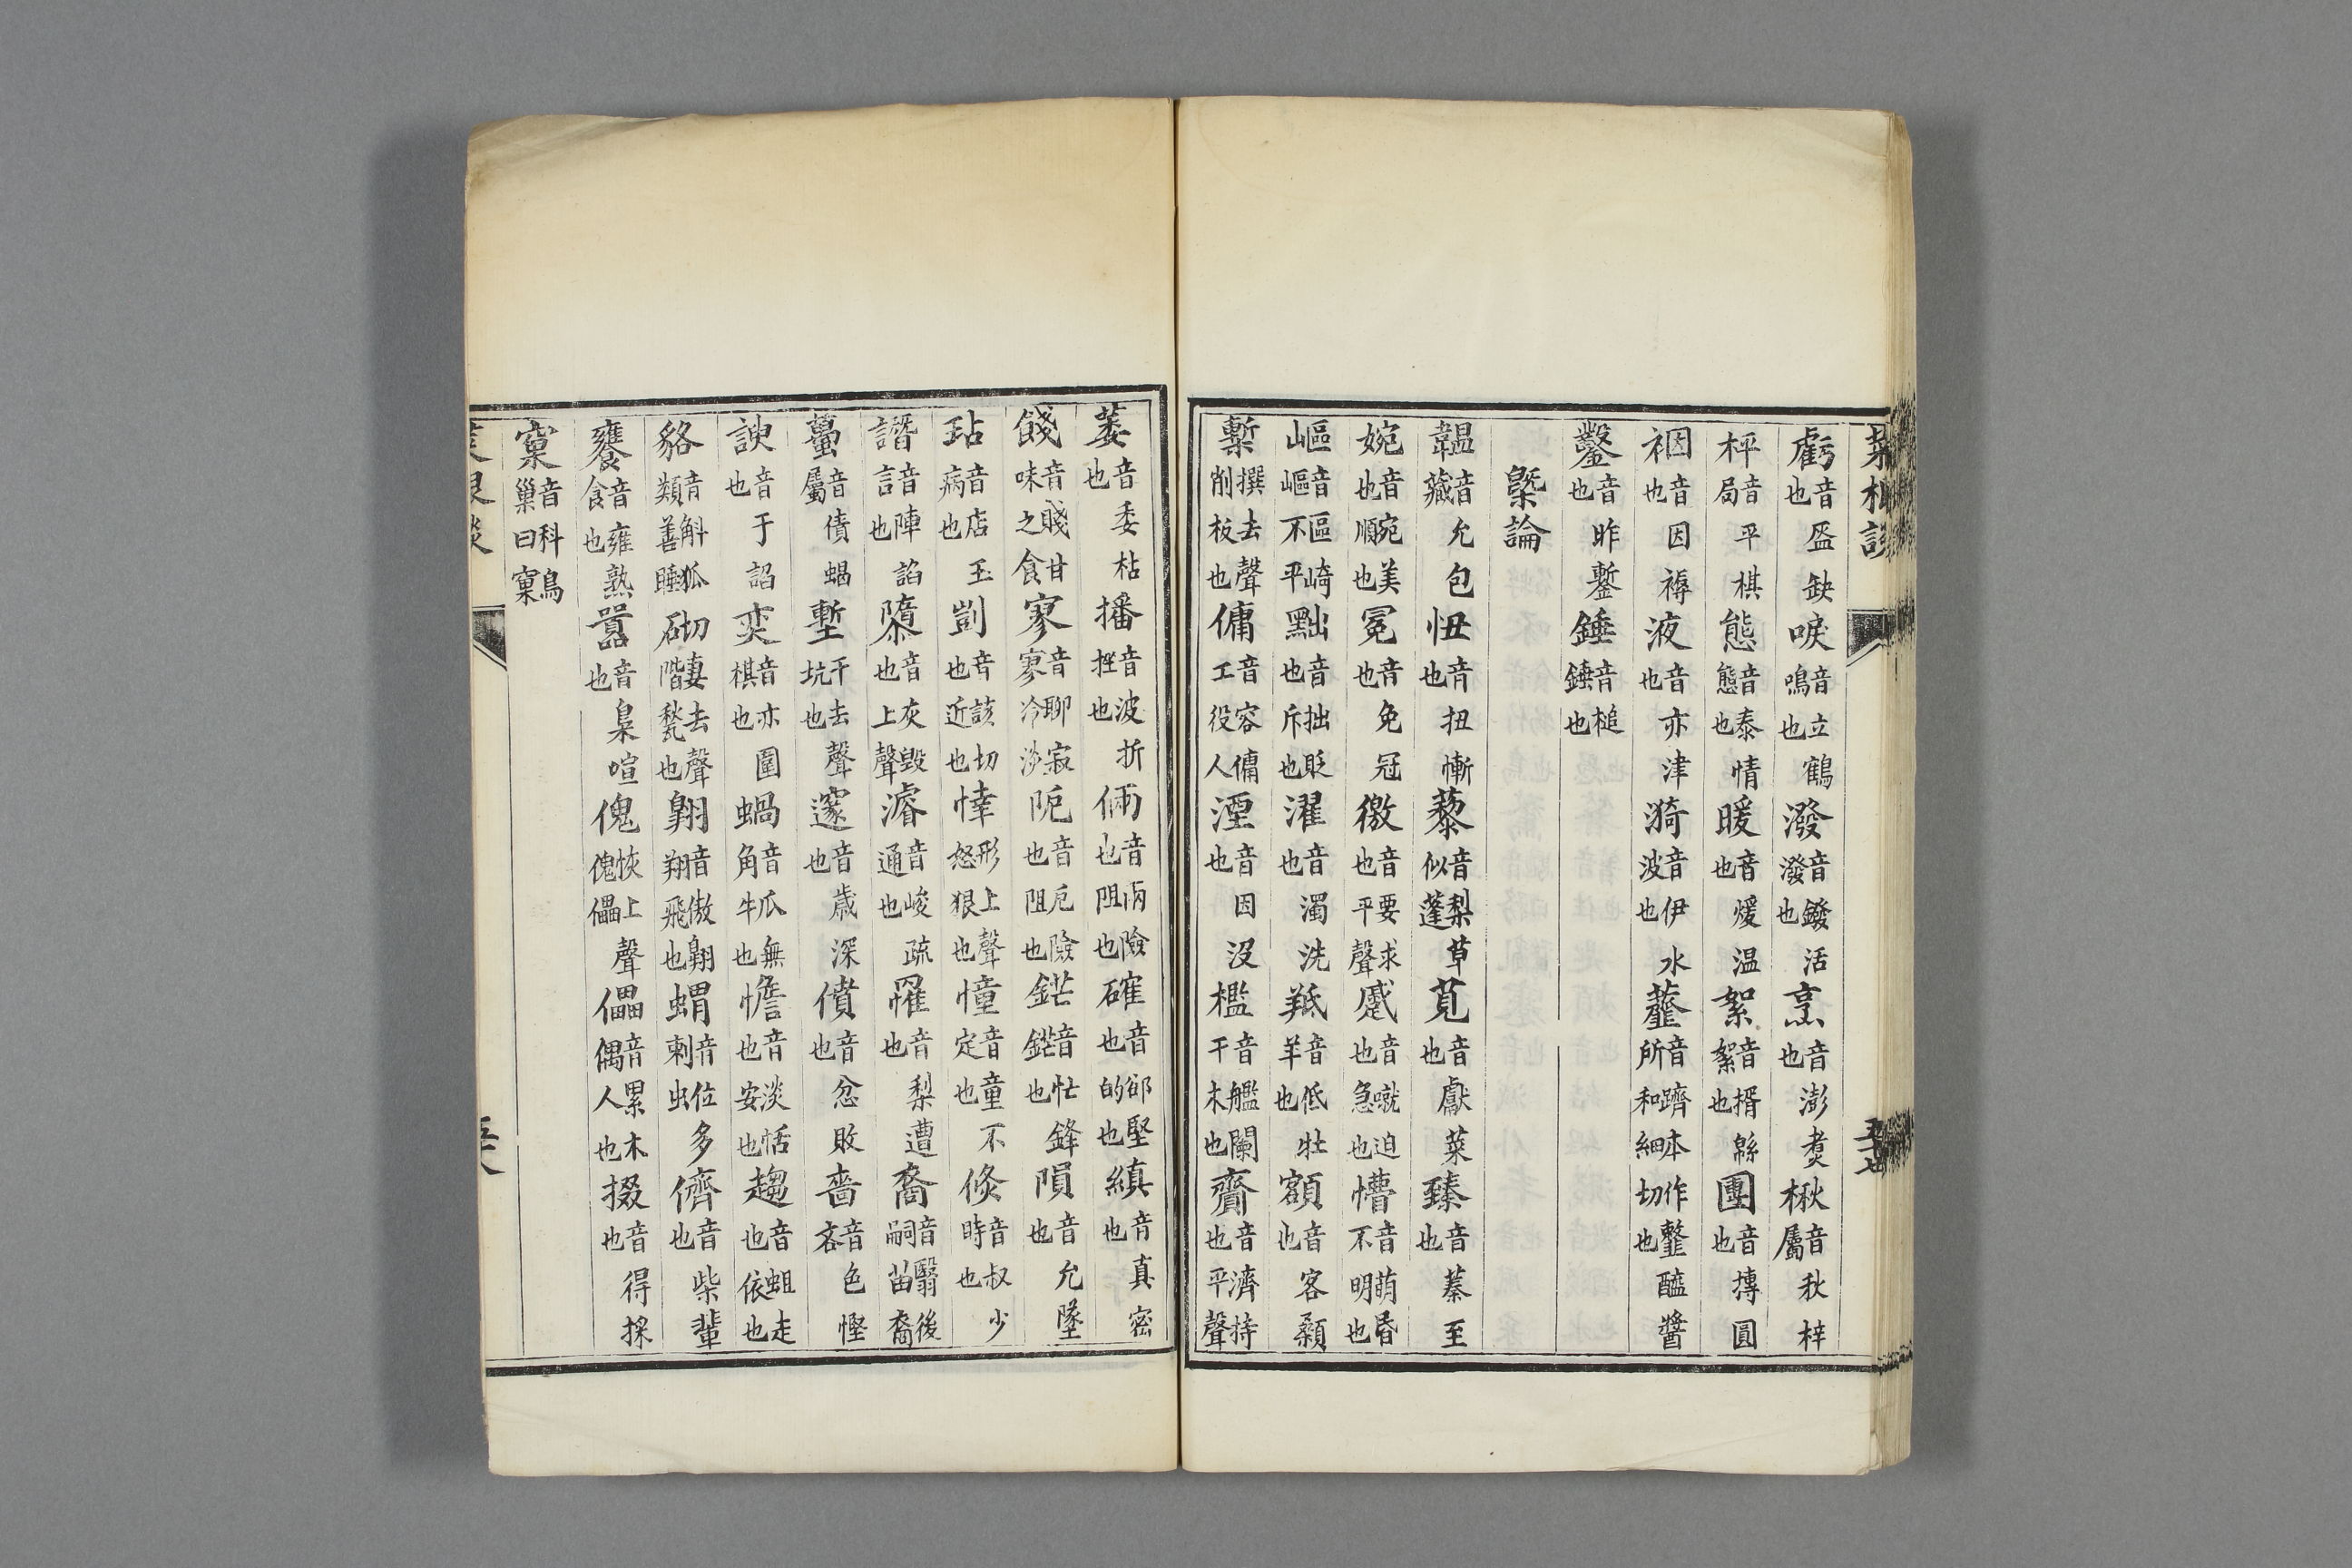 菜根談 五十七
虧音盔缺也唳音立鶴鳴也潑音鏺活潑也烹音澎煑也楸音秋梓屬
枰音平棋局態音泰情態也暖音煖温也絮音揟緜絮也團音摶圓也
裀音因褥也液音亦津也漪音伊水波也虀音躋本作韲醯醬所和細切也
鑿音昨鏨也錘音槌錘也
槩論
韞音允包藏忸音扭慚也藜音梨草似蓬莧音獻菜也臻音蓁至也
婉音宛美也順也冕音免冠也徼音要求也平聲慼音蹴迫也急也懵音萌昬不明也
嶇音區崎嶇不平黜音拙貶也斥也濯音濁洗也羝音低牡羊也額音客顙也
槧撰去聲削板也傭音容傭工役人湮音因沒也檻音艦闌干木也齎音濟持也平聲
萎音委枯也播音波折挫也倆音兩險也阻也確音郤堅也的也縝音真密也
餞音賤甘味之食寥音聊寂寥冷淡阨音戹險也阻也鋩音忙鋒鋩也隕音允墜也
玷音店玉病也剴音該切也近也悻形上聲怒狠也憧音童不定也倐音叔少時也
譖音陣諂言也隳音灰毁也上聲濬音峻疏通也罹音梨遭也裔音翳後嗣苗裔
蠆音債蝎屬塹干去聲坑也邃音歲深也僨音忿敗也嗇音色慳吝
諛音于諂也奕音亦圍棋也蝸音瓜無角牛也憺音淡恬也安也趨音蛆走也依也
貉音斛狐類善睡砌切妻去聲階甃也翺音傲翺翔飛也蝟音位多刺虫儕音柴輩也
饔音雍熟食也囂音臬喧也傀恢上聲傀儡儡音累木偶人也掇音得採也
窠音科鳥巢曰窠
菜根談